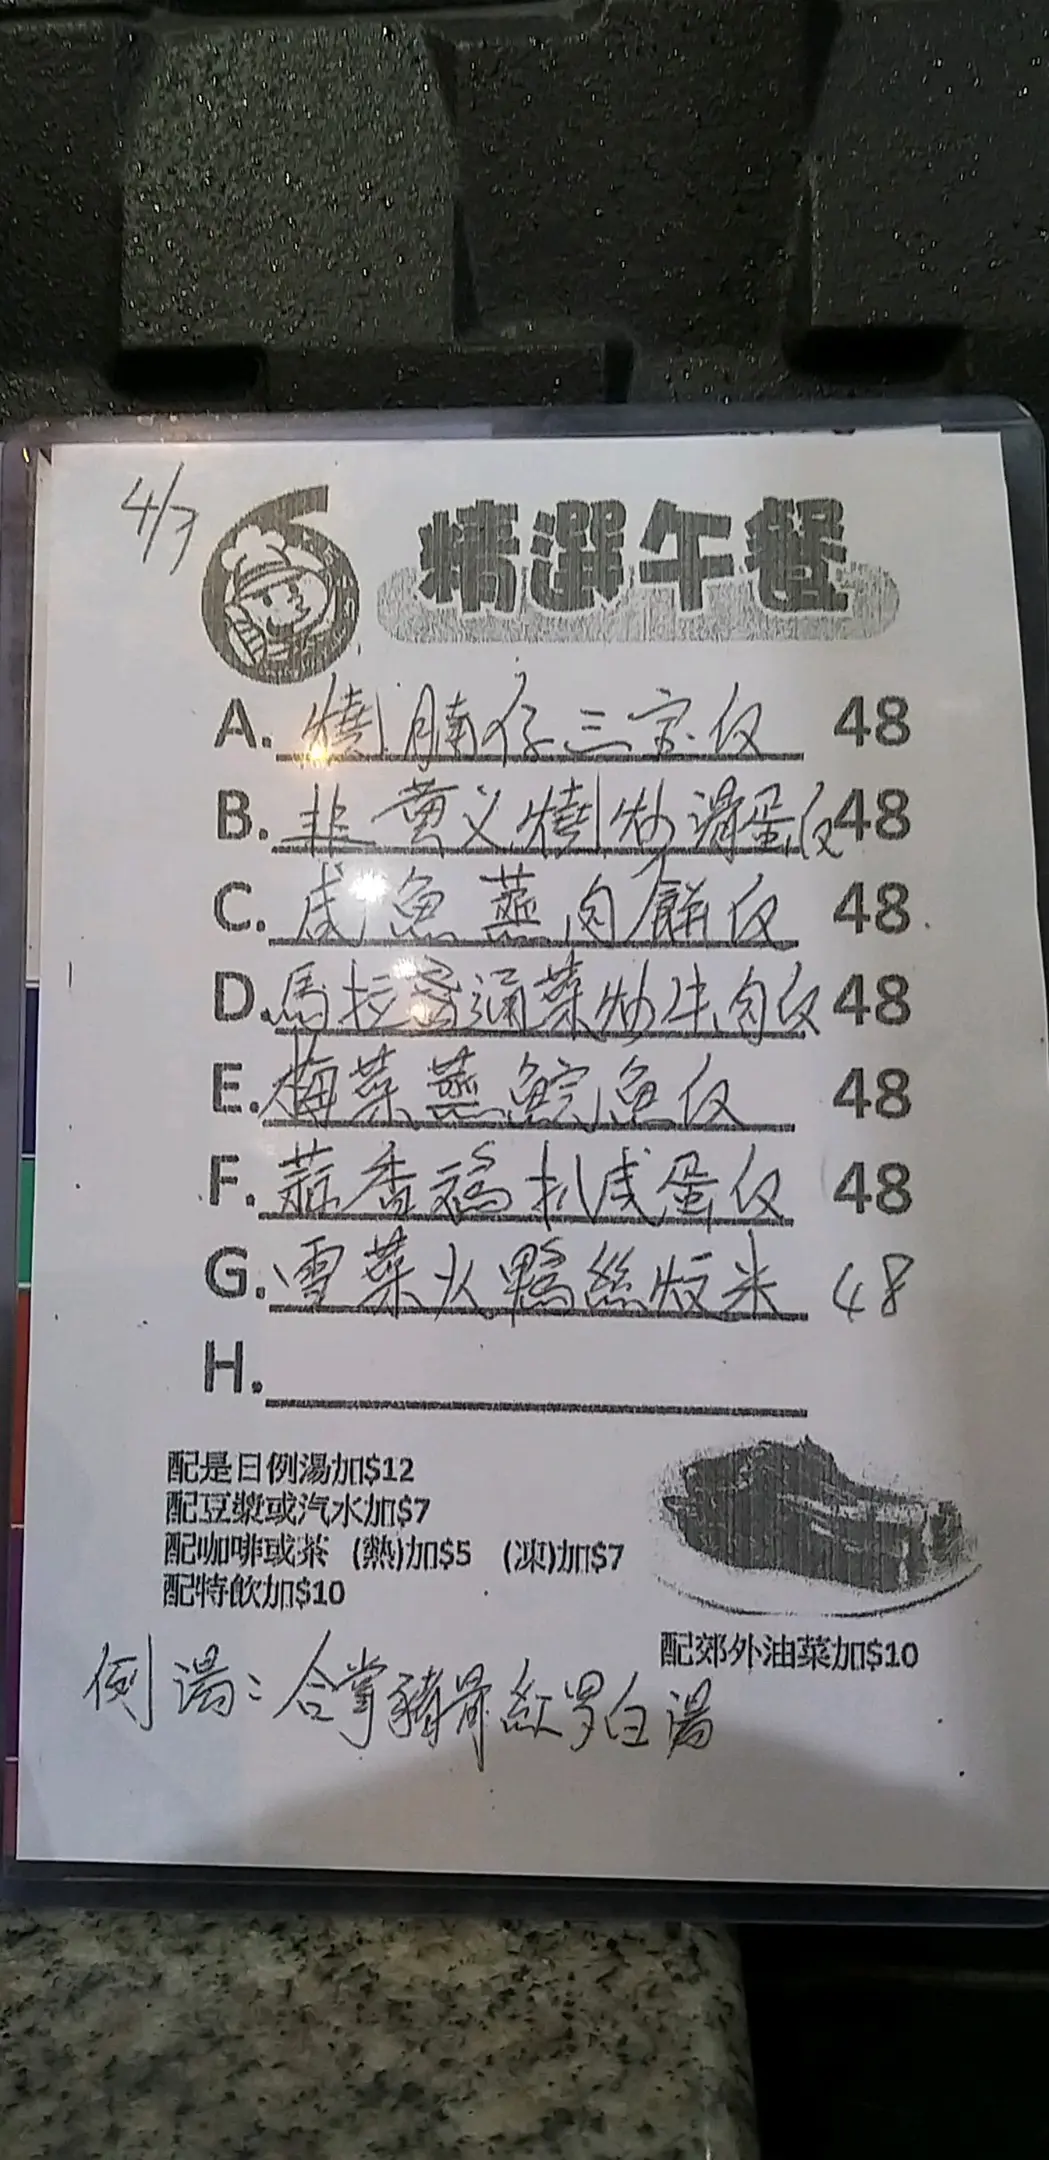 4/7
精選午餐
A. 燒腩仔三宝仅 48
B. 韭黄义燒炒滑蛋仅 48
C. 咸魚蒸肉餅仅 48
D. 馬拉盞通菜炒牛肉仅 48
E. 梅菜蒸鯇魚仅 48
F. 蒜香鸡扒咸蛋仅 48
G. 雪菜火鴨絲炆米 48
H.
配是日例湯加$12
配豆漿或汽水加$7
配咖啡或茶 (熱)加$5 (凍)加$7
配特飲加$10
配郊外油菜加$10
例湯：合掌豬骨紅罗白湯